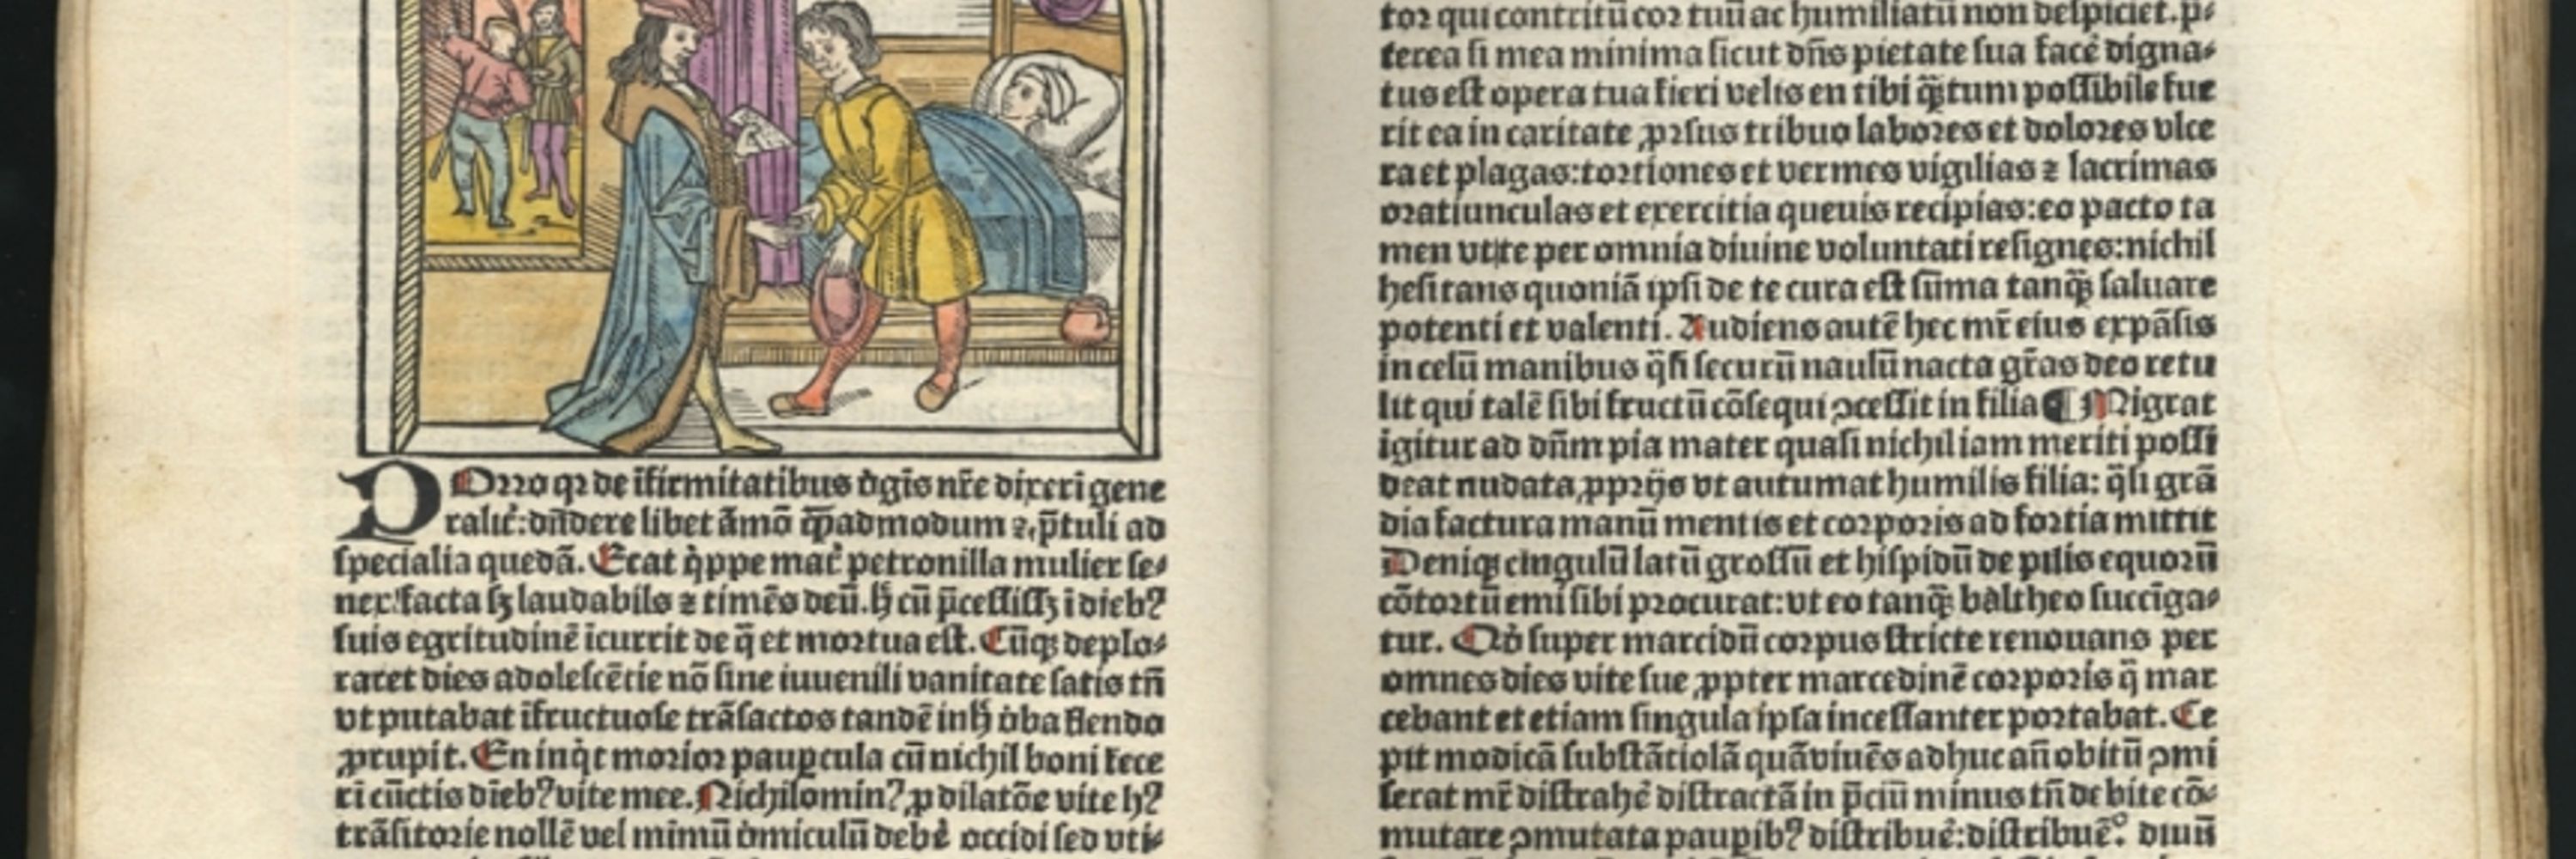 POrro qꝛ de ĩfirmitatibus ꝟgĩs nr̃e dixeri gene
ralit᷑: dñdere libet ãmõ q̃admodum ⁊ p̃tuli ad
specialia quedã. Erat q̇ppe mat᷑ petronilla mulier ſe⸗
nex facta ſꝫ laudabilis ⁊ timẽs deũ. h̃ cũ p̃ceſſiſſꝫ ĩ dieb?
ſuis egritudinẽ ĩcurrit de q̃ et mortua eſt. Cũqꝫ deplo⸗
raret dies adoleſcẽtie nõ ſine iuuenili vanitate ſatis tñ
vt putabat ĩfructuoſe trãſactos tandẽ in h̃ ꝟba flendo
ꝓrupit. En inq̇t morior pauꝑcula cũ nichil boni fece
ri cũctis dieb? vite mee. Nichilomin? ꝓ dilatõe vite h?
trãſitorie nollẽ vel mimũ ꝟmiculũ debẽ occidi ſed vti⸗
tor qui contritũ cor tuũ ac humiliatũ non deſpiciet. p̃⸗
terea ſi mea minima ſicut dñs pietate ſua facẽ digna⸗
tus eſt opera tua fieri velis en tibi q̃tum poſſibile fue
rit ea in caritate ꝓrſus tribuo labores et dolores vlce
ra et plagas: tortiones et vermes vigilias ⁊ lacrimas
oratiunculas et exercitia queuis recipias: eo pacto ta
men vt te per omnia diuine voluntati reſignes: nichil
heſitans quoniã ipſi de te cura eſt ſũma tanq̃ꝫ ſaluare
potenti et valenti. Audiens autẽ hec mr̃ eius expãſis
in celũ manibus q̃ſi ſecurũ naulũ nacta gr̃as deo retu
lit qui talẽ ſibi fructũ cõſequi ꝯceſſit in filia ¶ Migrat
igitur ad dñm pia mater quaſi nichil iam meriti poſſi
deat nudata ꝓprijs vt autumat humilis filia: q̃ſi grã
dia factura manũ mentis et corporis ad fortia mittit
Deniqꝫ cingulũ latũ groſſũ et hiſpidũ de pilis equorũ
cõtortũ emi ſibi procurat: vt eo tanq̃ꝫ baltheo ſuccĩga⸗
tur. Qð ſuper marcidũ corpus ſtricte renouans per
omnes dies vite ſue ꝓpter marcedinẽ corporis q̃ mar
cebant et etiam ſingula ipſa inceſſanter portabat. Ce
pit modicã ſubſtãtiolã quã viuẽs adhuc añ obitũ ꝯmi
ſerat mr̃ diſtrahẽ diſtractã in p̃ciũ minus tñ debite cõ⸗
mutare ꝯmutata pauꝑib? diſtribuẽ: diſtribuẽ° diuũ